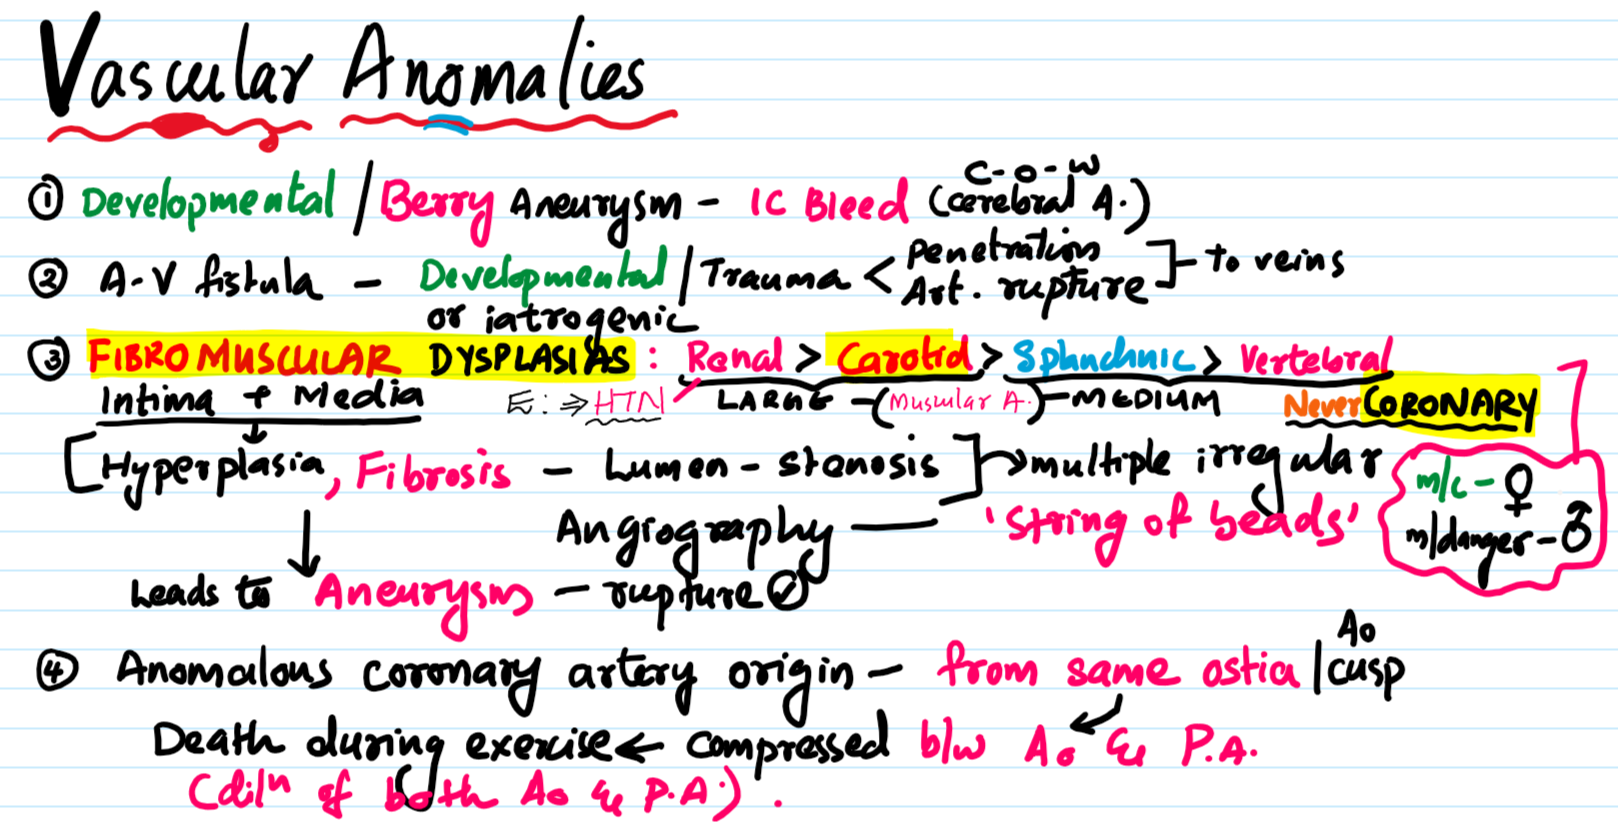 Vascular Anomalies
① Developmental / Berry Aneurysm - IC Bleed (cerebral A.)
C-O-W
② A-V fistula - Developmental / Trauma < Penetration
Art. rupture ] - to veins
or iatrogenic
③ FIBROMUSCULAR DYSPLASIAS : Renal > Carotid > Splanchnic > Vertebral
Intima + Media
E: ⇒ HTN
LARGE - (Muscular A.) - MEDIUM
Never CORONARY
[Hyperplasia, Fibrosis - Lumen - stenosis ] → multiple irregular
m/c - ♀
Angiography — 'string of beads'
m/danger - ♂
Leads to Aneurysms - rupture
④ Anomalous coronary artery origin - from same ostia / cusp
Ao
Death during exercise ← compressed b/w Ao & P.A.
(dilⁿ of both Ao & P.A.) .